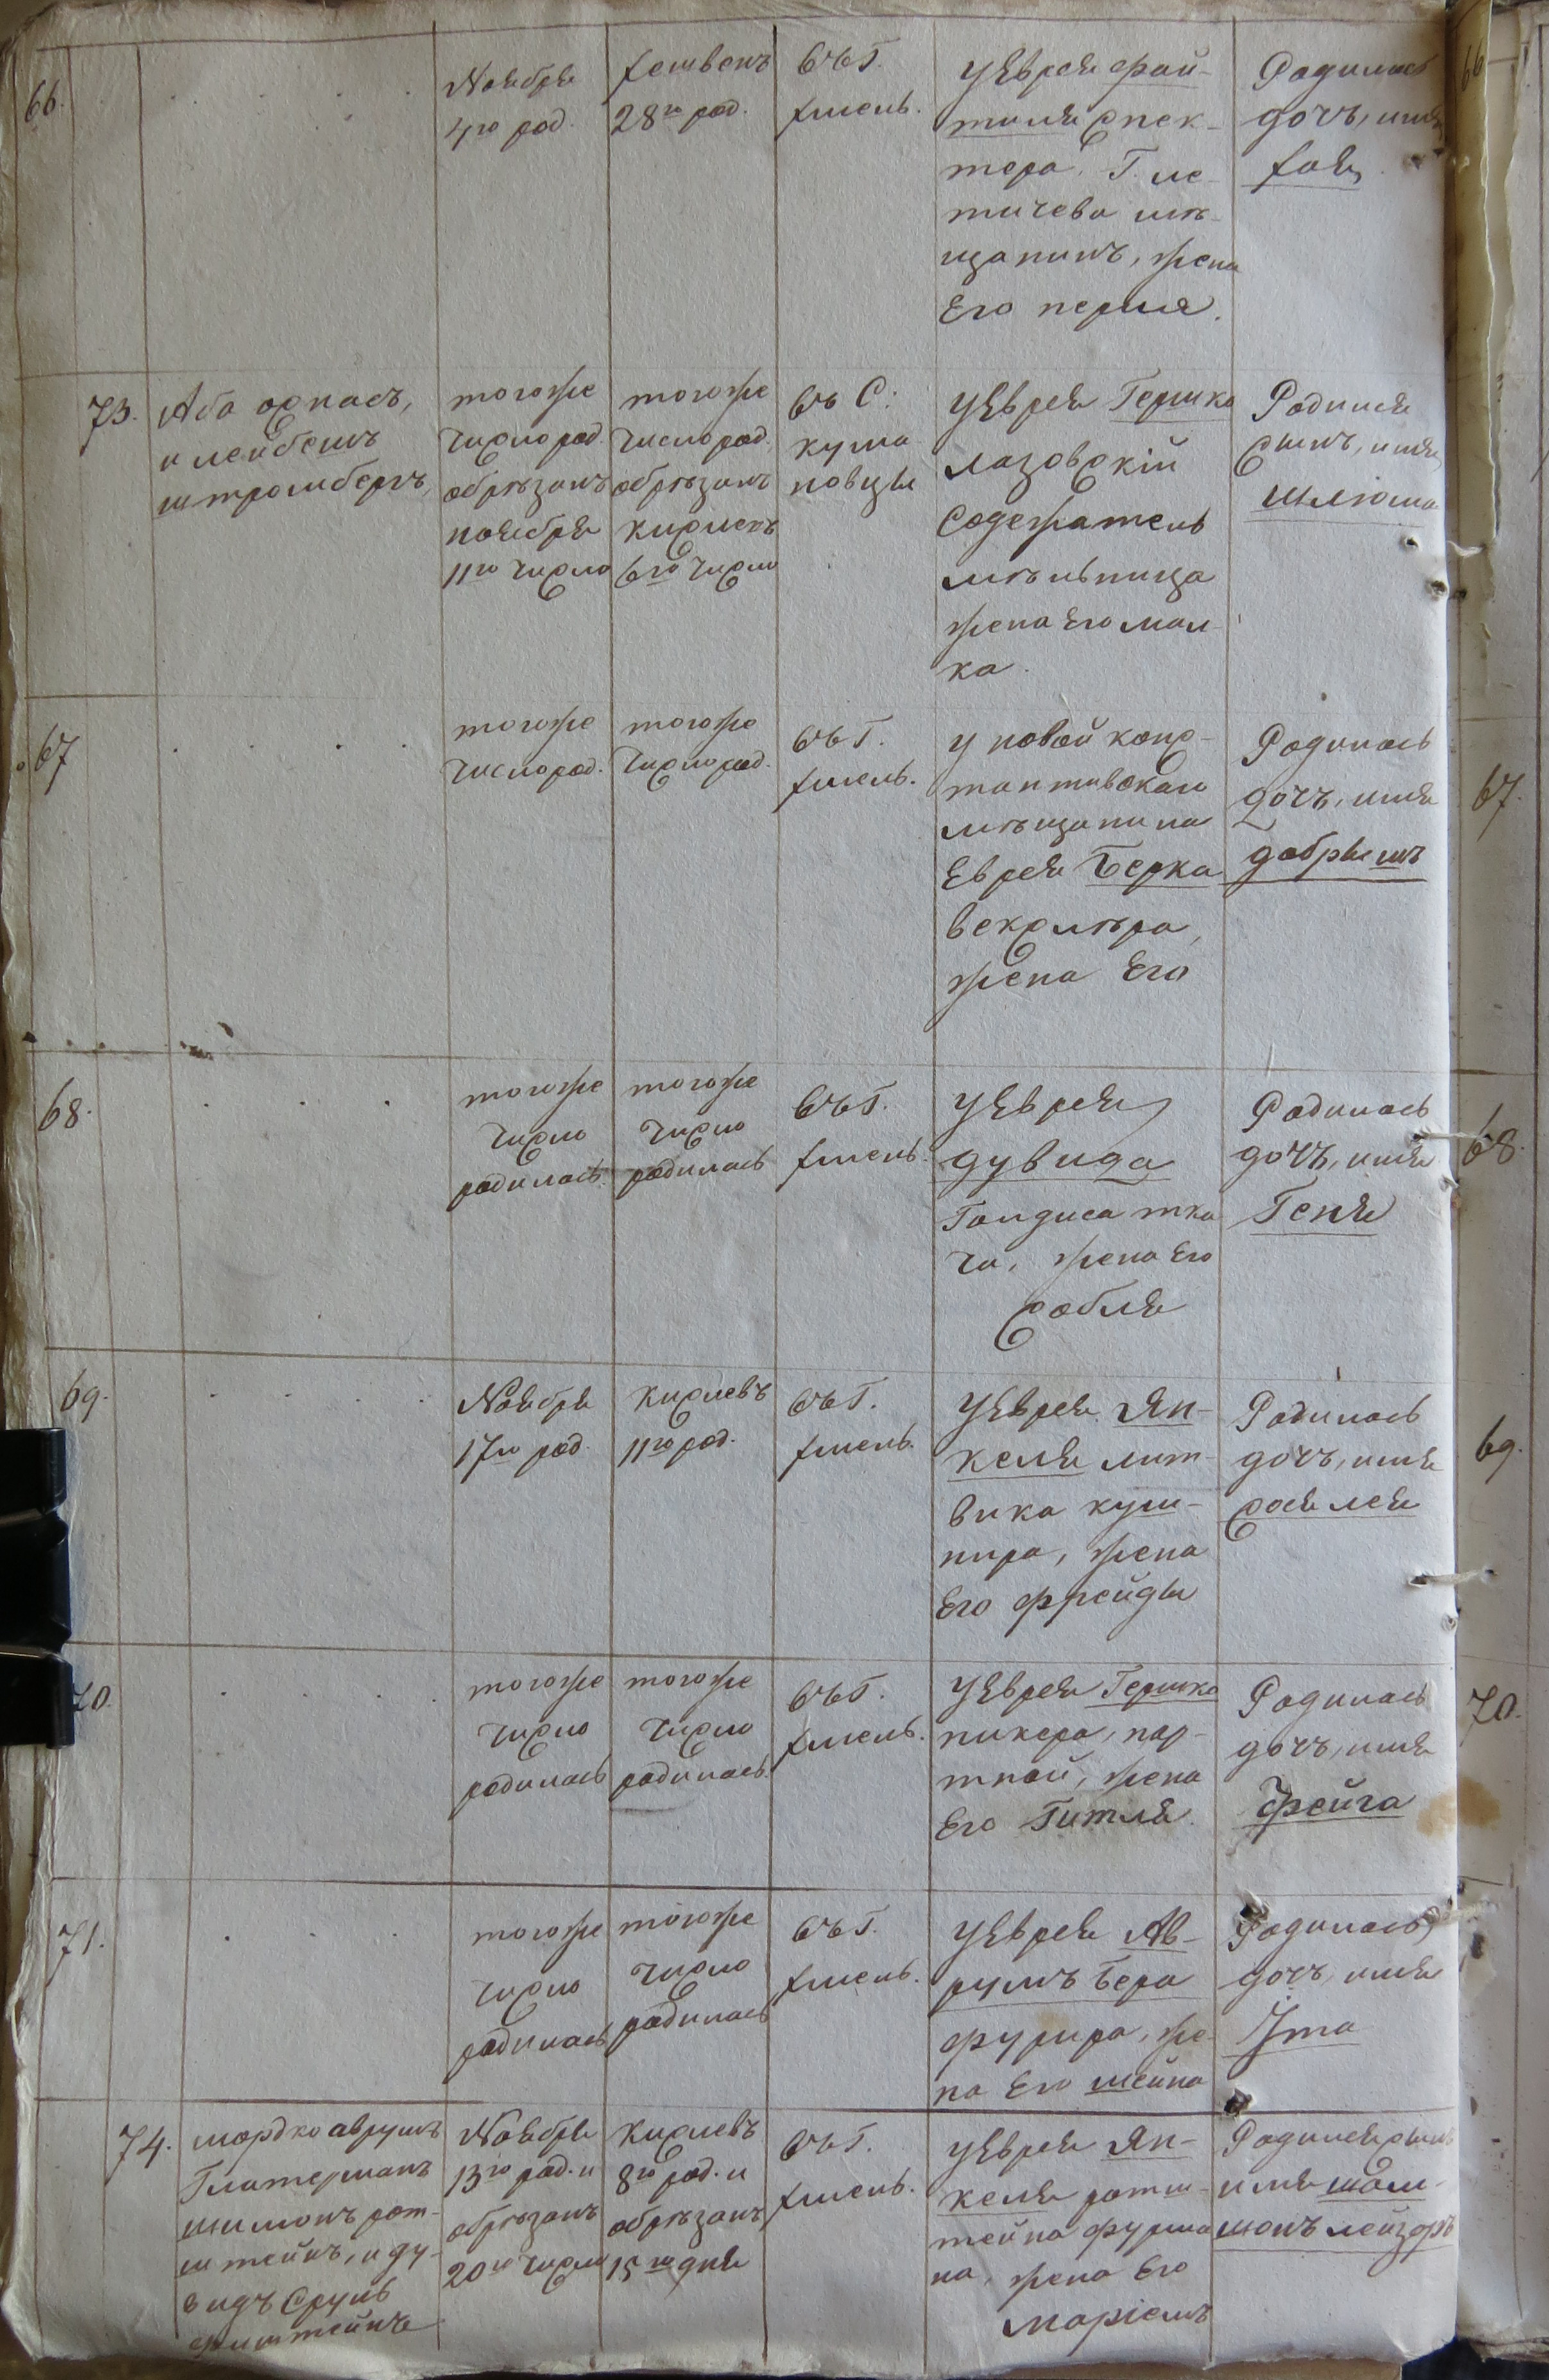 66.
Ноября
4го род.
хешвенъ
28го род.
въ Г.
хмель.
У Еврея Фай-
тиля Спек-
тера, Г. ле-
тичева мѣ-
щанинъ, жена
Его перля.
Родилась
дочъ, имя
хая
66
73.
Аба оснасъ,
и лейбешъ
штромбергъ,
тогоже
число род.
обрѣзанъ
ноября
11го число
тогоже
число род.
обрѣзанъ
кислевъ
6го число
въ С:
кума
новцы
У Еврея Гершко
лазовскій
Содержатель
мѣльница
жена Его мал-
ка.
Родился
Сынъ, имя
шлюма
67
тогоже
число род.
тогоже
число род.
въ Г.
хмель.
у новой конс-
тантивскаго
мѣщанина
Еврея Берка
векслѣра,
жена Его
Родилась
дочъ, имя
добрышъ
67.
68.
тогоже
число
родилась.
тогоже
число
родилась
въ Г.
хмель.
У Еврея
дувида
Голдиса тка
ча, жена Его
Собля
Родилась
дочъ, имя
Геня
68.
69.
Ноября
17го род.
кислевъ
11го род.
въ Г.
хмель.
У Еврея Ян-
келя лит-
вика куш-
нира, жена
Его фрейды
Родилась
дочъ, имя
Сося лея
69.
70.
тогоже
число
родилась
тогоже
число
родилась.
въ Г.
хмель.
У Еврея Гершко
пикера, пор-
тной, жена
Его Гитля.
Родилась
дочъ, имя
Фейга
70.
71.
тогоже
число
родилась
тогоже
число
родилась
въ Г.
хмель.
У Еврея Ав-
румъ Бера
фурира, же-
на Его шейна
Родилась
дочъ, имя
Ута
74.
мордко аврумъ
Глатерманъ
шимонъ рот-
штейнъ, и ду-
видъ Сруль
фиштейнъ
Ноября
13го род. и
обрѣзанъ
20го число
Кислевъ
8го род. и
обрѣзанъ
15го дня
въ Г.
хмель.
У Еврея Ян-
келя ротш-
тейна фурма
на, жена Его
маріемъ
Родился сынъ
имя шоли-
монъ лейзоръ